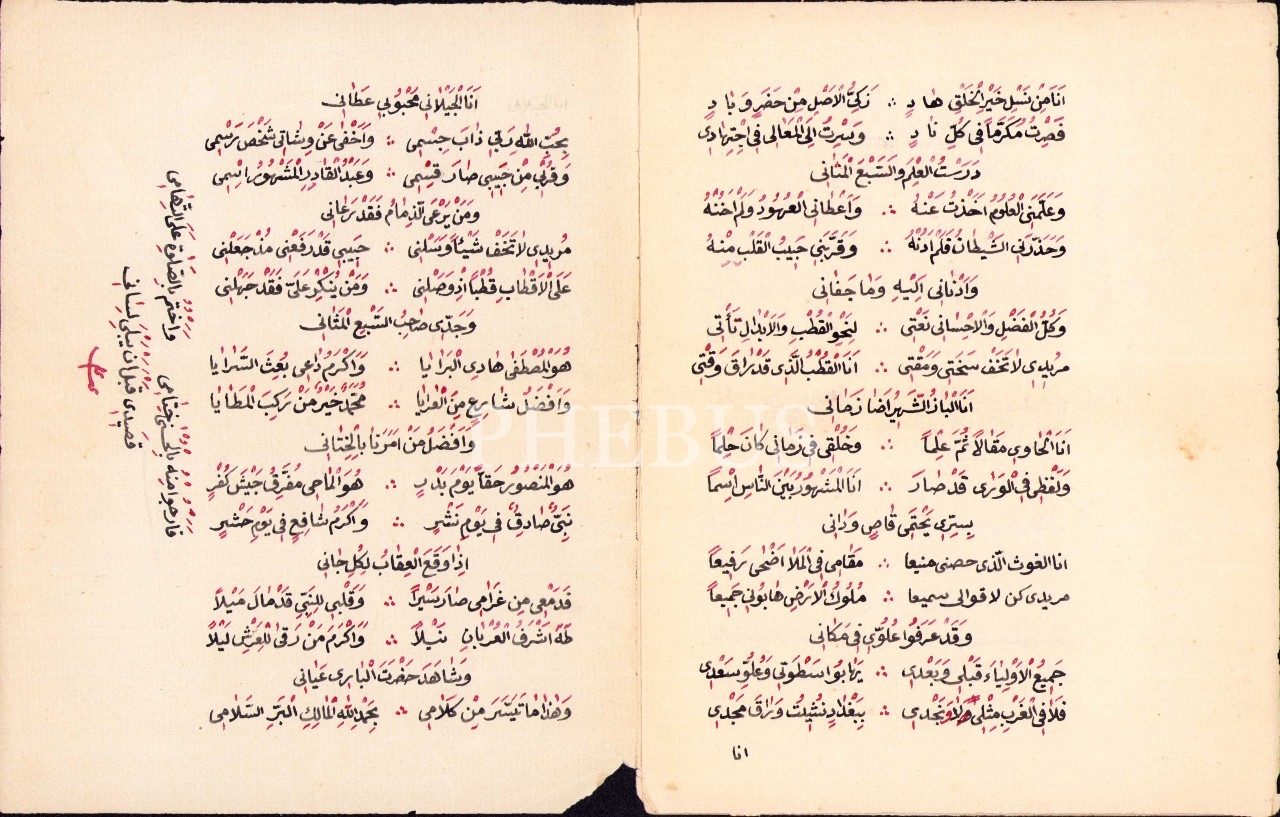 اَنَا مِنْ نَسْلِ خَيْرِ الْخَلْقِ هَادٍ ∴ زَكِيُّ الْاَصْلِ مِنْ حَضَرٍ وَبَادٍ
فَصِرْتُ مُكَرَّمًا فِي كُلِّ نَادٍ ∴ وَسِرْتُ اِلَى الْمَعَالِى فِي اجْتِهَادِى
دَرَسْتُ الْعِلْمَ وَالسَّبْعَ الْمَثَانِى
وَعَلَّمَنِى الْعُلُومَ اَخَذْتُ عَنْهُ ∴ وَاَعْطَانِى الْعُهُودَ وَلَمْ اَخُنْهُ
وَحَذَّرَنِى الشَّيْطَانَ فَلَمْ اَدِنْهُ ∴ وَقَرَّبَنِى حَبِيبُ الْقَلْبِ مِنْهُ
وَاَدْنَانِى اِلَيْهِ وَمَا جَفَانِى
وَكُلُّ الْفَضْلِ وَالْاِحْسَانِى نَعْتِى ∴ لِنَحْوِ الْقُطْبِ وَالْاَبْدَالِ تَأْتِى
مُرِيدِى لَا تَخَفْ سَخَتِى وَمَقْتِى ∴ اَنَا الْقُطْبُ الَّذِى قَدْ رَاقَ وَقْتِى
اَنَا الْبَازُ الشَّهِيرُ اَضَا زَمَانِى
اَنَا الْحَاوِى مَقَالَةً ثُمَّ عِلْمًا ∴ وَخُلْقِى فِي زَمَانِى كَانَ حِلْمًا
وَلَفْظِى فِي الْوَرَى قَدْ صَارَ ∴ اَنَا الْمَشْهُورُ بَيْنَ النَّاسِ اِسْمًا
بِسِرِّى يَحْتَمِى قَاصٍ وَدَانِى
انا الغوث الّذى حصنى منيعا ∴ مَقَامِى فِي الْمَلَا اَضْحَى رَفِيعًا
مريدى كن لاقوالى سميعا ∴ مُلُوكُ الْاَرْضِ هَابُونِى جَمِيعًا
وَقَدْ عَرَفُوا عُلُوِّى فِي مَكَانِى
جَمِيعُ الْاَوْلِيَاءِ قَبْلِى وَبَعْدِى ∴ يَهَابُوا سَطْوَتِى وَعُلُوِّ سَعْدِى
فَلَا فِي الْغَرْبِ مِثْلِى وَلَا وَنَجْدِى ∴ بِبَغْدَادٍ نَشِيتُ وَرَاقَ مَجْدِى
انا
اَنَا الْجَيْلَانِى مَحْبُوبِى عَطَانِى
بِحُبِّ اللهِ رَبِّى ذَابَ جِسْمِى ∴ وَاَخْفَى عَنْ وُشَاتِى شَخْصَ رَسْمِى
وَقُرْبِى مِنْ حَبِيبِى صَارَ قِسْمِى ∴ وَعَبْدُ الْقَادِرِ الْمَشْهُورُ اِسْمِى
وَمَنْ يَرْعَى الذِّمَامَ فَقَدْ رَعَانِى
مُرِيدِى لَا تَخَفْ شَيْئًا وَسَلْنِى ∴ حَبِيبِى قَدْ رَفَعْنِى مُذْ جَعَلْنِى
عَلَى الْاَقْطَابِ قُطْبًا اِذْ وَصَلْنِى ∴ وَمَنْ يُنْكِرْ عَلَىَّ فَقَدْ جَهِلْنِى
وَجَدِّى صَاحِبُ السَّبْعِ الْمَثَانِى
هُوَ الْمُصْطَفَى هَادِى الْبَرَايَا ∴ وَاَكْرَمُ دَاعِى بُعِثَ السَّرَايَا
وَاَفْضَلُ شَارِعٍ مِنَ الْعَرَايَا ∴ مُحَمَّدٌ خَيْرُ مَنْ رَكِبَ الْمَطَايَا
وَاَفْضَلُ مَنْ اَمَرَنَا بِالْخِتَانِى
هُوَ الْمَنْصُورُ حَقًّا يَوْمَ بَدْرٍ ∴ هُوَ الْمَاحِى مُفَرِّقُ جَيْشِ كُفْرٍ
نَبِىٌّ صَادِقٌ فِي يَوْمِ نَشْرٍ ∴ وَاَكْرَمُ شَافِعٍ فِي يَوْمِ حَشْرٍ
اِذَا وَقَعَ الْعِقَابُ لِكُلِّ جَانِى
فَدَمْعِى مِنْ غَرَامِى صَارَ سَيْرًا ∴ وَقَلْبِى لِلنَّبِىِّ قَدْ مَالَ مَيْلًا
طٰهَ اَشْرَفُ الْعُرْبَانِ نَيْلًا ∴ وَاَكْرَمَ مَنْ رَقَى لِلْعَرْشِ لَيْلًا
وَشَاهَدَ حَضْرَتَ الْبَارِى عَيَانِى
وَهٰذَا مَا تَيَسَّرَ مِنْ كَلَامِى ∴ بِحَمْدِ اللهِ الْمَالِكِ الْبَرِّ السَّلَامِى
فارجو منه بالحسنى ختامى واختم بالصلوة على التهامى
قصيدى قبل ان يبلى لسانى